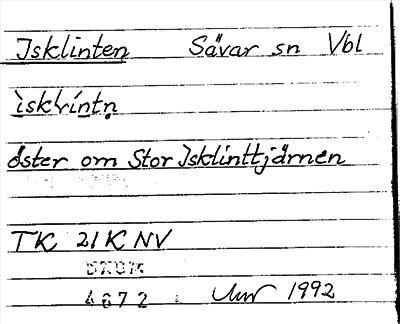 Isklinten Sävar sn Vbl
ìsklíntn̥
öster om Stor Isklinttjärnen
TK 21K NV
4672 1992